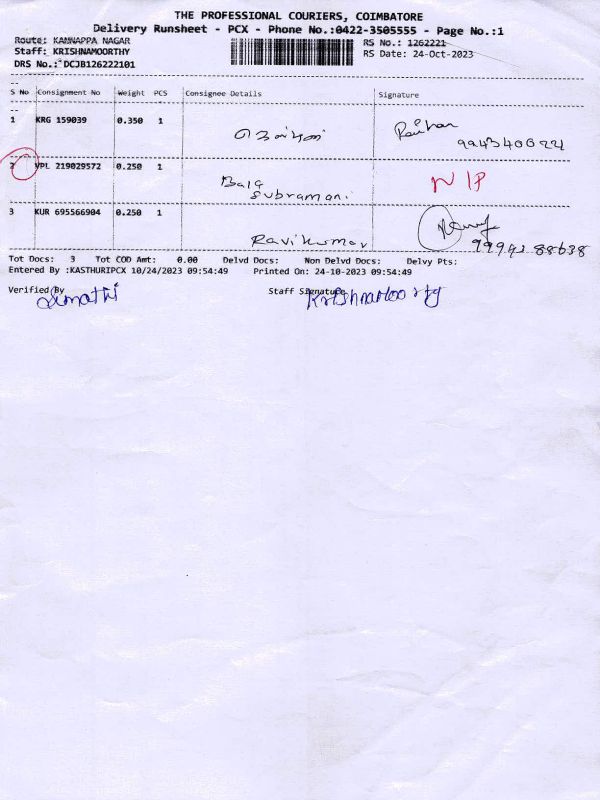 THE PROFESSIONAL COURIERS, COIMBATORE
Delivery Runsheet - PCX - Phone No.:0422-3505555 - Page No.:1
Route: KANNAPPA NAGAR
RS No.: 1262221
Staff: KRISHNAMOORTHY
RS Date: 24-Oct-2023
DRS No.: DCJB126222101
S No Consignment No Weight PCS Consignee Details Signature
1 KRG 159039 0.350 1
2 VPL 219029572 0.250 1 Bala Subramani N/P
3 KUR 695566904 0.250 1 Ravikumar
Tot Docs: 3 Tot COD Amt: 0.00 Delvd Docs: Non Delvd Docs: Delvy Pts:
Entered By :KASTHURIPCX 10/24/2023 09:54:49 Printed On: 24-10-2023 09:54:49
Verified By Staff Signature
Krishnamoorthy